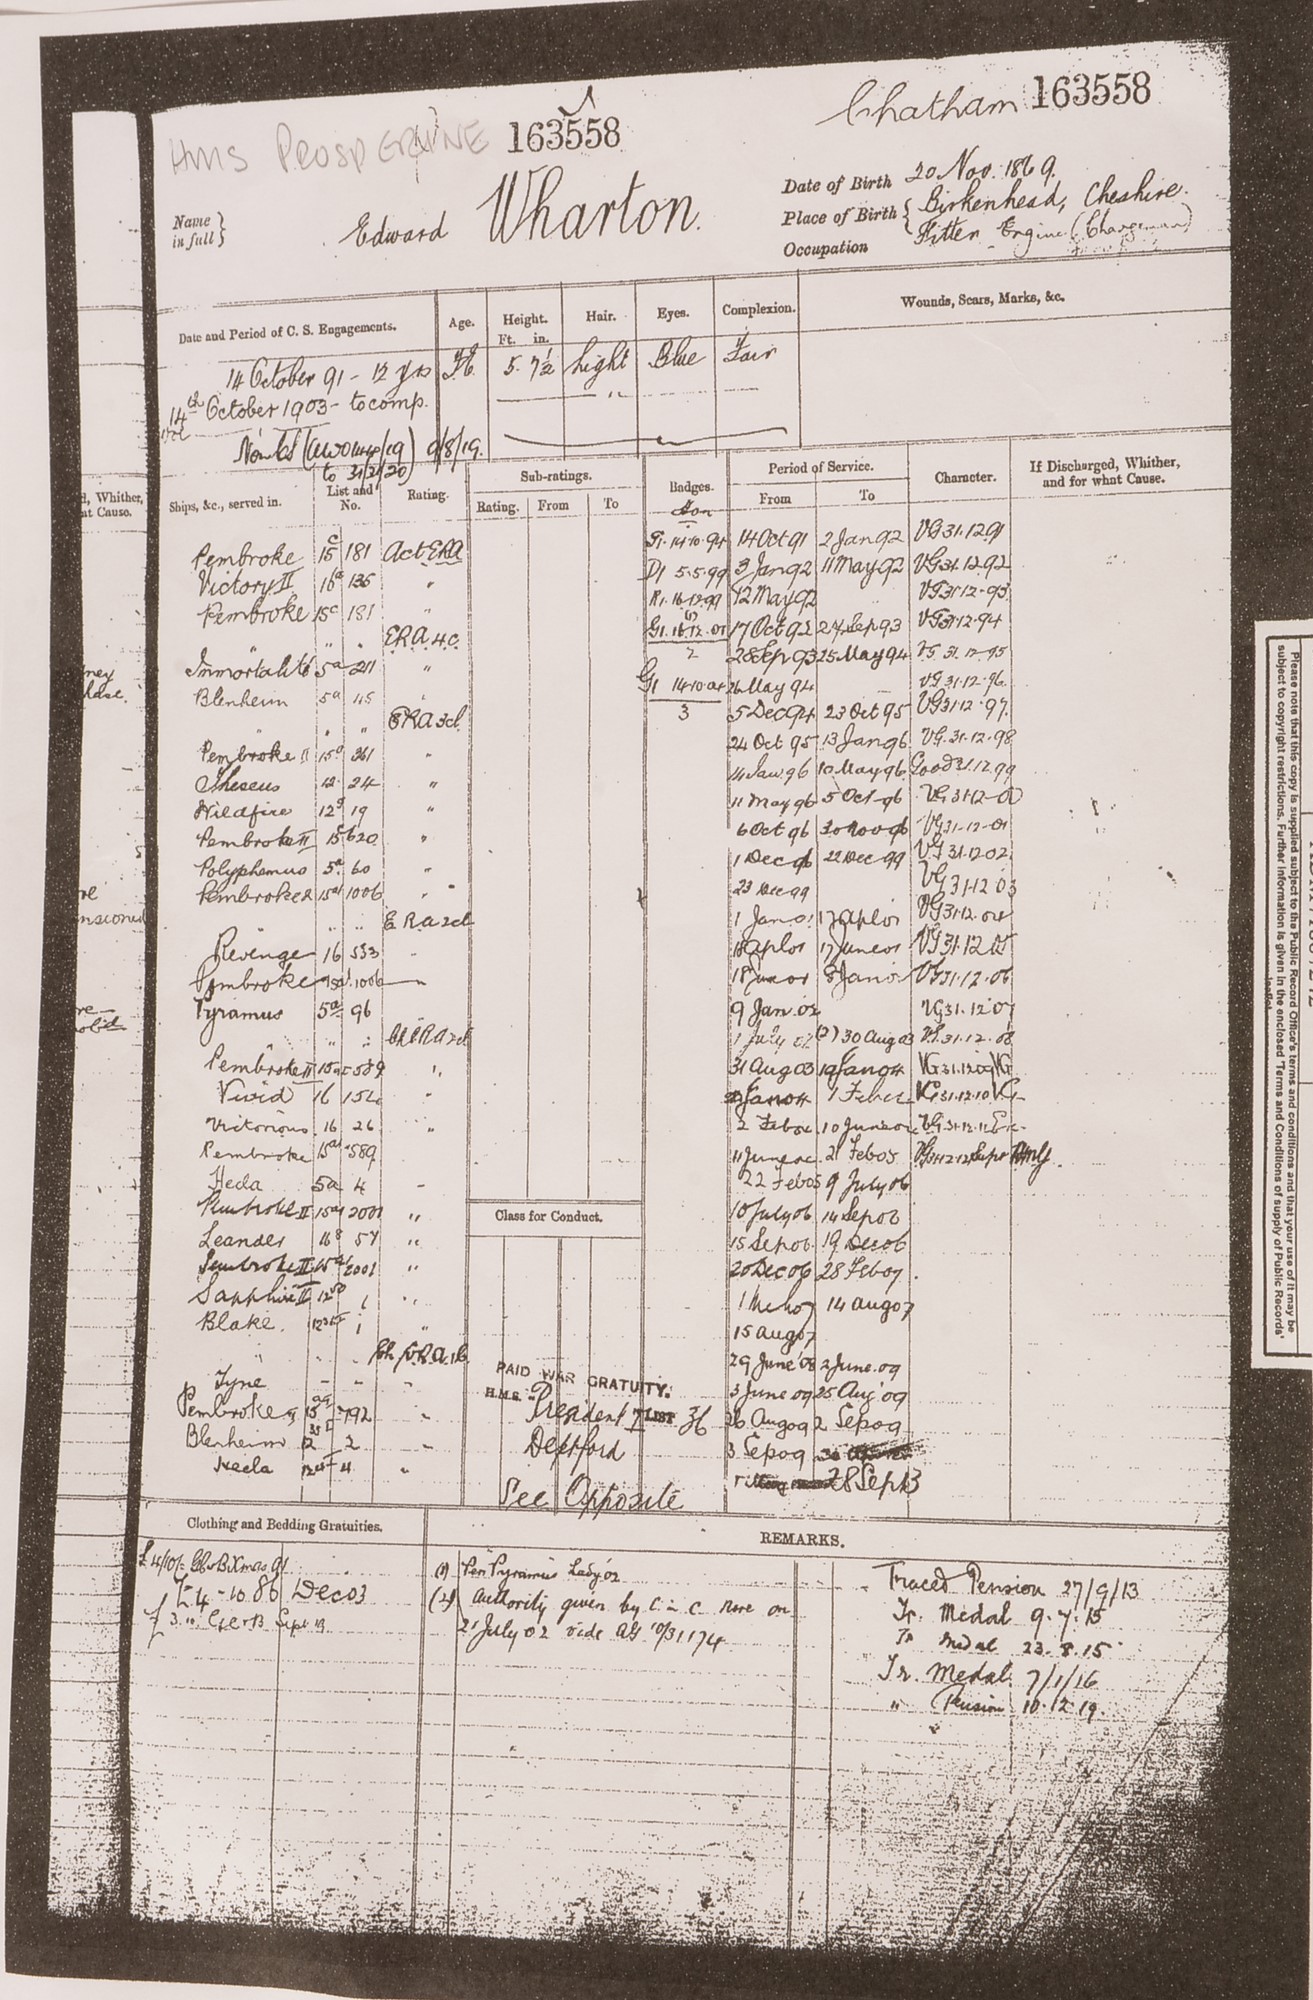 HMS PROSPERINE 163558 Chatham 163558
Name in full } Edward Wharton.
Date of Birth 20 Nov. 1869.
Place of Birth { Birkenhead, Cheshire.
Occupation Fitter Engine (Chargeman)
Date and Period of C. S. Engagements. Age. Height. Ft. in. Hair. Eyes. Complexion. Wounds, Scars, Marks, &c.
14 October 91 - 12 yrs 5. 7½ Light Blue Fair
14th October 1903 - to comp. "
9/8/19.
to 31/2/20)
Ships, &c., served in. List and No. Rating. Sub-ratings. Rating. From To Badges. Period of Service. From To Character. If Discharged, Whither, and for what Cause.
Pembroke 15c 181 Act ERA G1. 14.10.94 14 Oct 91 2 Jan 92 VG 31.12.91
Victory II 16a 135 " D1 5.5.99 3 Jan 92 11 May 92 VG 31.12.92
Pembroke 15c 181 " R1. 16.12.99 12 May 92 VG 31.12.93
" " E.R.A. 4c. 17 Oct 92 27 Sep 93 VG 31.12.94
2
Immortalité 5a 211 " 28 Sep 93 25 May 94 VG 31.12.95
Blenheim 5a 45 " G1 14.10.04 26 May 94 VG 31.12.96
3
" " ERA 3cl. 5 Dec 94 23 Oct 95 VG 31.12.97.
Pembroke II 15a 361 " 24 Oct 95 13 Jan 96 VG. 31.12.98
Theseus 12. 24 " 14 Jan 96 10 May 96 Good 31.12.99
Wildfire 12a 19 " 11 May 96 5 Oct 96 VG 31-12-00
Pembroke II 15 620 " 6 Oct 96 30 Nov 96 VG 31-12-01
Polyphemus 5a 60 " 1 Dec 96 22 Dec 99 VG 31.12.02
Pembroke 2 15a1 1006 " 23 Dec 99 VG 31.12 03
" " E R A 2cl 1 Jan 01 17 Apl 01 VG 31.12.04
Revenge 16 533 " 18 Apl 01 17 June 01 VG 31.12.05
Pembroke 15a1 1006 " 18 June 01 8 Jan VG 31.12.06
Pyramus 5a 96 9 Jan 02 VG 31.12.07
" " Ch ERA 2cl 1 July 02 (2) 30 Aug 03 VG. 31.12.08
Pembroke II 15a 589 " 31 Aug 03 19 Jan 04 VG 31.12.09 VG
Vivid 16 154 " Jan 04 1 Feb VG 31.12.10 VG
Victorious 16 26 " 2 Feb 10 June VG. 31.12.11
Pembroke 15a1 589 11 June 21 Feb 05 VG 31.12.12 Supr
Hecla 5a 4 " 22 Feb 05 9 July 06
Pembroke II 15a1 2001 " 10 July 06 14 Sep 06
Class for Conduct.
Leander 16a 57 " 15 Sep 06. 19 Dec 06
Pembroke II 15a1 2001 " 20 Dec 06 28 Feb 07.
Sapphire II 12 1 " 1 Mch 07 14 Aug 07
Blake. 1 " 15 Aug 07
" " Ch. E.R.A. 1c. 29 June '08 2 June. 09
PAID WAR GRATUITY.
Tyne " " " 3 June 09 25 Aug '09
H.M.S. President I LIST 36
Pembroke II 792 " 26 Aug 09 2 Sep 09
Blenheim 12 2 " Deptford 3 Sep 09
Hecla 4 " 28 Sept 13
See Opposite
Clothing and Bedding Gratuities. REMARKS.
£4/10/- Xmas 91
£4-10. 86 Dec 03
£ 3." C & B Sept 13
(1) Per Pyramus Lady '02
(2) Authority given by C in C Nore on
21 July 02 vide AG 10/31174
Traced Pension 27/9/13
Tr. Medal 9.7.15
Tr Medal 23.8.15
Tr. Medal 7/1/16
" Pension 10.12.19.
d, Whither, at Cause.
Please note that this copy is supplied subject to the Public Record Office's terms and conditions and that your use of it may be
subject to copyright restrictions. Further information is given in the enclosed 'Terms and Conditions of supply of Public Records'
leaflet